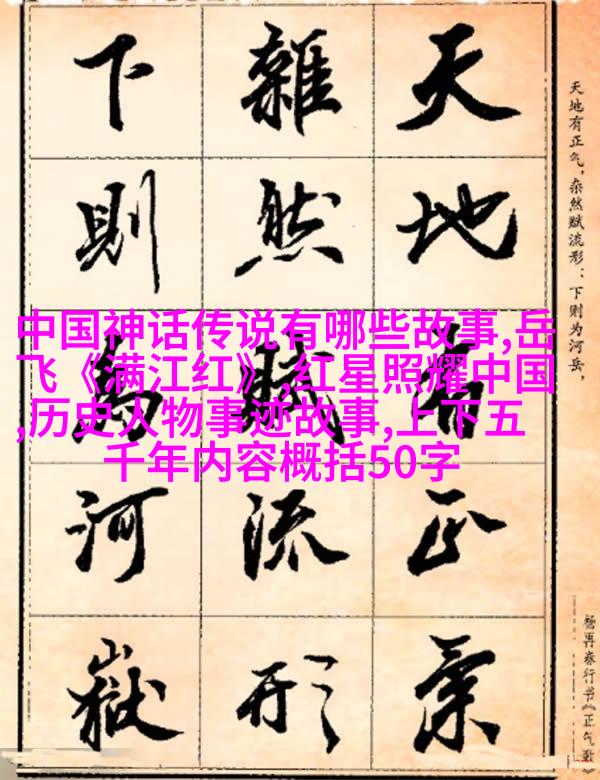 天地有正氣
雜然賦流形
下則為河嶽
天地有正气，杂然赋流形：下则为河岳，
杨再春行书《正气歌》
中国神话传说有哪些故事,岳
飞《满江红》,红星照耀中国
,历史人物事迹故事,上下五
千年内容概括50字